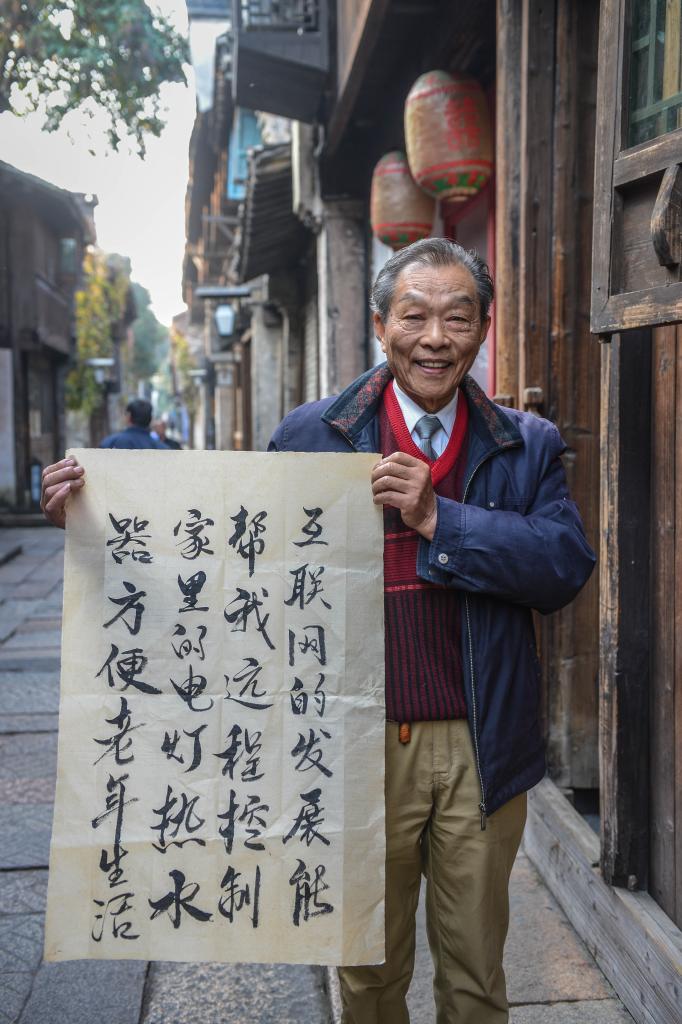 互联网的发展能
帮我远程控制
家里的电灯热水
器方便老年生活